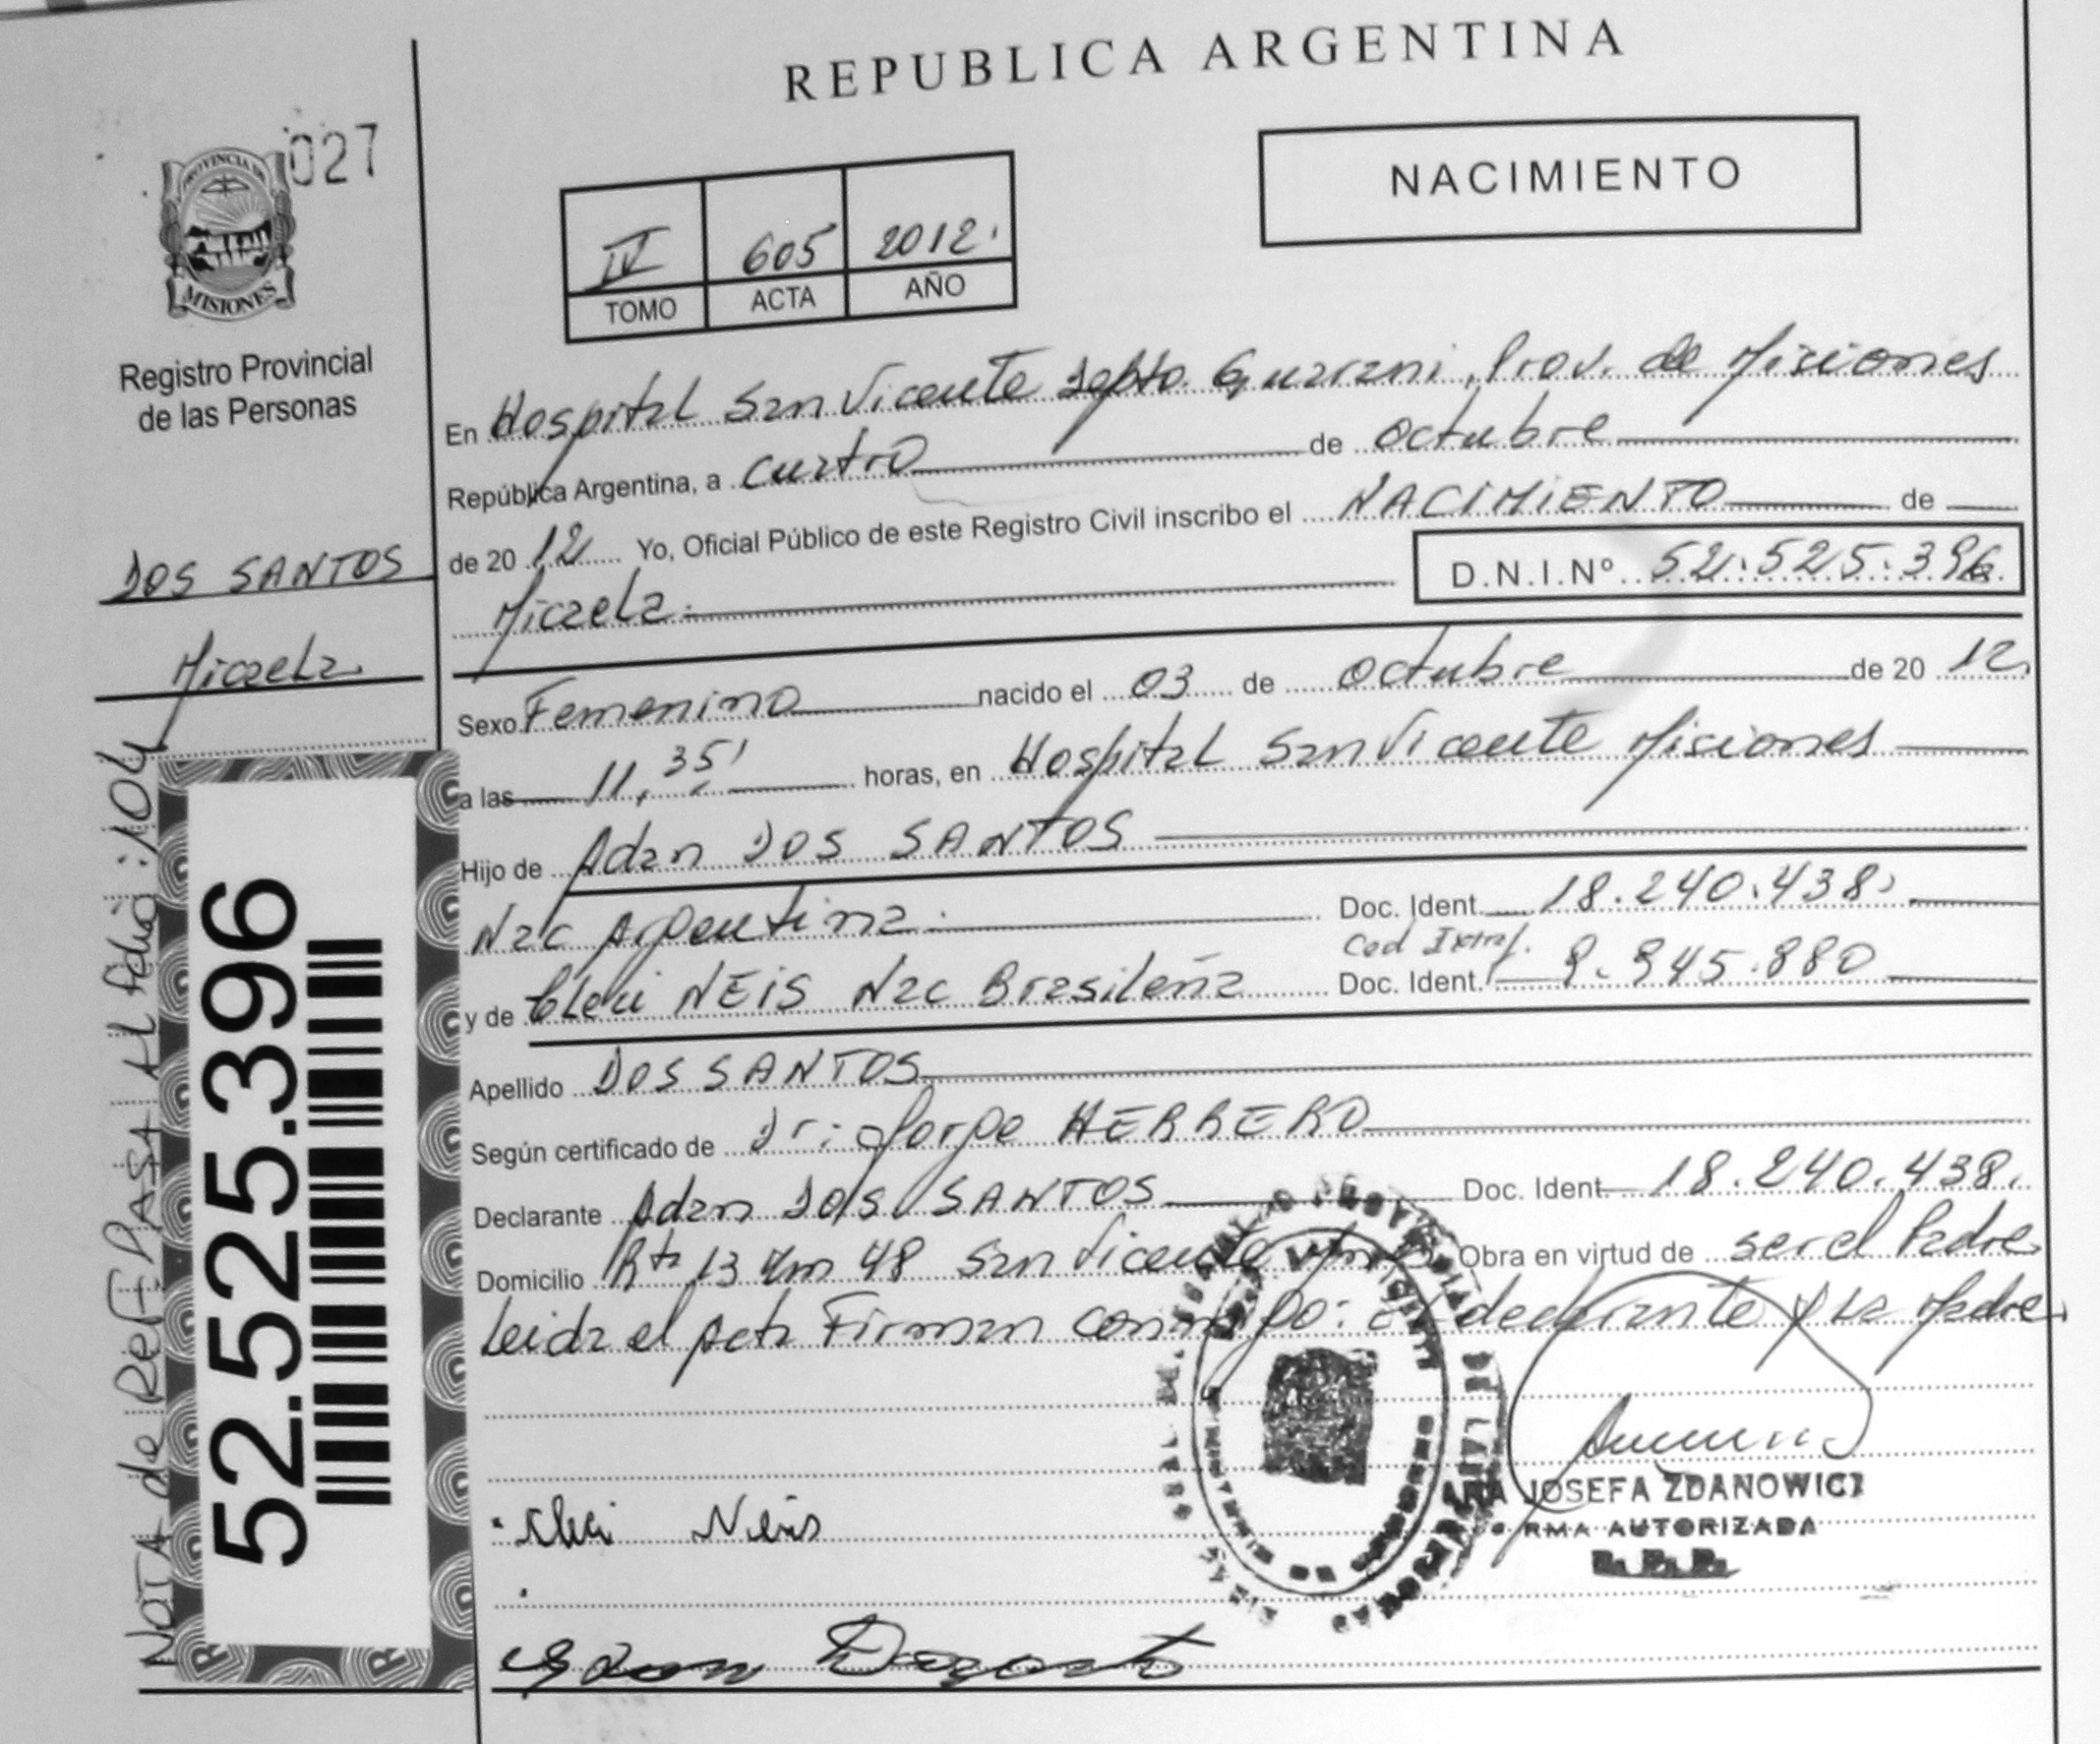 REPUBLICA ARGENTINA
027
PROVINCIA DE
MISIONES
Registro Provincial
de las Personas
NACIMIENTO
IV 605 2012.
TOMO ACTA AÑO
DOS SANTOS
Micaela
NOTA de Ref. PASA Al folio: 104
52.525.396
En Hospital San Vicente Depto. Guarani, Prov. de Misiones
República Argentina, a cuatro de octubre
de 20 12 Yo, Oficial Público de este Registro Civil inscribo el NACIMIENTO de
Micaela. D.N.I.Nº 52.525.396
Sexo Femenino nacido el 03 de octubre de 20 12
a las 11,35' horas, en Hospital San Vicente Misiones
Hijo de Adan DOS SANTOS
Nac Argentina. Doc. Ident. 18.240.438
y de Cleci NEIS Nac Brasileña Ced Extraj. Doc. Ident. 9.945.880
Apellido DOS SANTOS
Según certificado de Dr: Jorge HERRERO
Declarante Adan DOS SANTOS Doc. Ident. 18.240.438.
Domicilio Rta 13 Km 48 San Vicente Obra en virtud de ser el Padre
Leida el Acta Firman conmigo: el declarante y la Madre
Cleci Neis
JOSEFA ZDANOWICZ
RMA AUTORIZADA